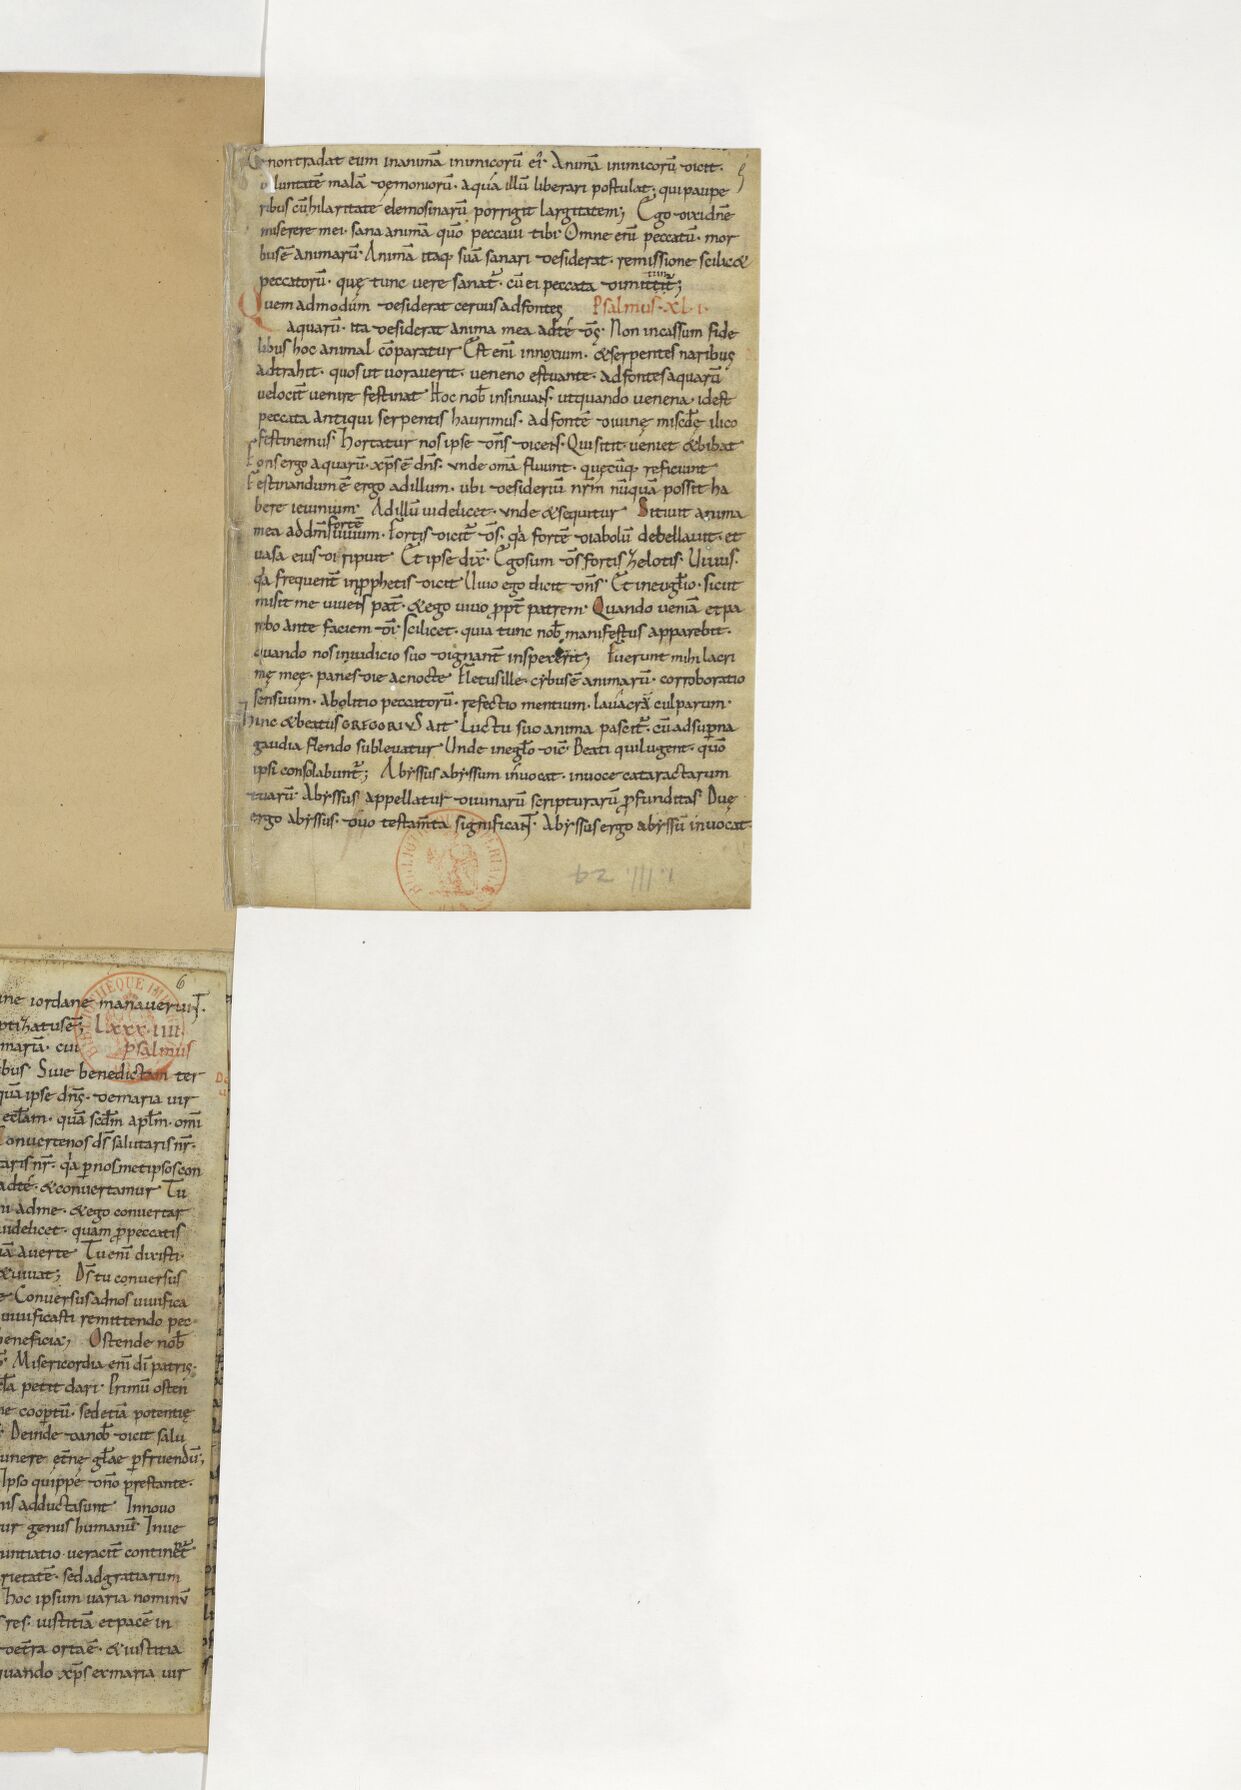 Et non tradat eum in animā inimicorū ei᷒· Animā inimicorū dicit·
voluntatē malā demoniorū· a qua illū liberari postulat; qui paupe
ribus cū hilaritate elemosinarū porrigit largitatem; Ego dixi dn̄e
miserere mei· sana animā quō peccavi tibi· Omne enī peccatū· mor
bus ē animarū· Animā itaq; suā sanari desiderat· remissione scilic&
peccatorū· quę tunc vere sanat᷑· cū ei peccata dimittit᷑;
Quem admodum desiderat cervus ad fontes Psalmus· XL·I·
aquarū· ita desiderat anima mea ad te ds̄· Non incassum fide
libus hoc animal cōparatur· Est enī innoxium· & serpentes naribus
adtrahit· quos ut voraverit· veneno estuante· ad fontes aquarū
velocit̄ venire festinat· Hoc nob̄ insinuans· ut quando venena· idest
peccata antiqui serpentis haurimus· ad fontē divinę misc̄dę ilico
festinemus· Hortatur nos ipse dn̄s dicens· Qui sitit· veniet & bibat·
Fons ergo aquarū· xp̄s ē dn̄s· unde omā fluunt· quęcūq; reficiunt·
Festinandum ē ergo ad illum· ubi desideriū nr̄m nūquā possit ha
bere ieiunium· Ad illū videlicet· unde & sequitur· Sitivit anima
mea ad dm̄ fontē vivum· Fortis dicit᷑ ds̄· q̇a fortē diabolū debellavit· et
vasa eius diripuit· Et ipse dix̄· Ego sum ds̄ fortis zelotis· Vivus·
q̇a frequent̄ in pphetis dicit· Vivo ego dicit dn̄s· Et in evgl̄io· sicut
misit me vivens pat̄· & ego vivo ppt̄ patrem· Quando veniā et pa
rebo ante faciem dī· scilicet· quia tunc nob̄ manifestus apparebit·
quando nos in iudicio suo dignant̄ inspexerit; Fuerunt mihi lacri
mę meę· panes die ac nocte· Fletus ille· cybus ē animarū· corroboratio
sensuum· abolitio peccatorū· refectio mentium· lavacrā culparum·
Hinc & beatus GREGORIUS ait· Luctu suo anima pascit᷑· cū ad superna
gaudia flendo sublevatur· Unde in egl̄o dic̄· Beati qui lugent· quō
ipsi consolabunt᷑; Abyssus abyssum invocat· in voce cataractarum
tuarū· Abyssus appellatur divinarū scripturarū pfunditas· Duę
ergo abyssus· duo testam̄ta significant· Abyssus ergo abyssū invocat·
5
1.III.24
6
ne iordane manaverunt·
ptizatus ē; LXXX·IIII
mariā· cui Psalmus
bus· Sive benedictam ter
quā ipse dn̄s· de maria vir
eccl̄am· quā scdm̄ apl̄m· omī
Converte nos ds̄ salutaris nr̄·
taris nr̄· q̇a p nosmetipsos con
ad te· & convertamur· Tu
ad me· & ego convertar
videlicet· quam p peccatis
iā averte· Tu enī dixisti·
& vivat; Ds̄ tu conversus
Conversus ad nos vivifica
vivificasti remittendo pec
beneficia; Ostende nob̄
Misericordia enī dī patris·
petit dari· Primū osten
ne coopertū· sed etiā potentię
Deinde da nob̄ dicit salu
unere et̄nę gl̄ae pfruendū;
Ipso quippe dn̄o prestante·
nis adducta sunt· In novo
ur genus humanū· In ve
untiatio veracit̄ continet᷑
rietatē· sed ad gratiarum
hoc ipsum varia nominū
res· iustitiā et pacē in
de t̄ra orta ē· & iustitia
quando xp̄s ex maria vir